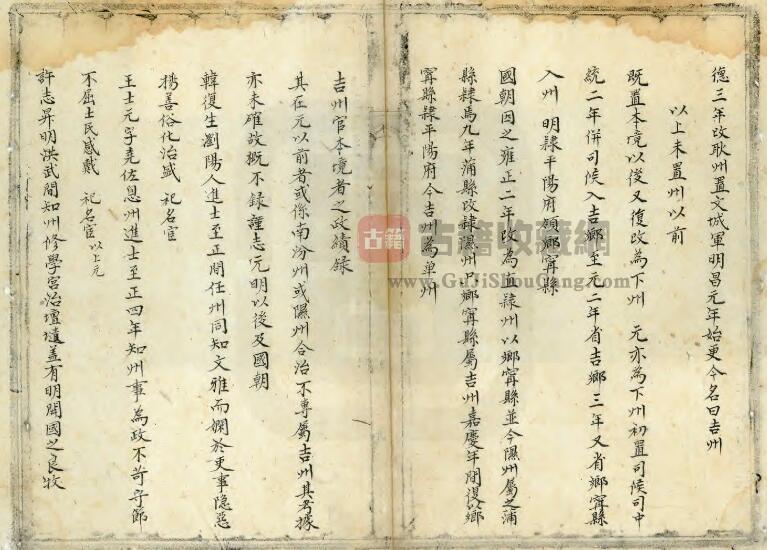 德三年改耿州置文城軍明昌元年始更今名曰吉州
以上未置州以前
既置本境以後又復改為下州 元亦為下州初置司候司中
統二年併司候入吉鄉至元二年省吉鄉三年又省鄉寗縣
入州 明隸平陽府領鄉寗縣
國朝因之雍正二年改為直隸州以鄉寗縣並今隰州屬之蒲
縣隸焉九年蒲縣改隸隰州只鄉寗縣屬吉州嘉慶年間復以鄉
寗縣隸平陽府今吉州為單州
吉州官本境者之政績錄
其在元以前者或係南汾州或隰州合治不專屬吉州其名據
亦未確故概不錄謹志元明以後及國朝
韓復生瀏陽人進士至正間任州同知文雅而嫻於吏事隱惡
揚善俗化治盛 祀名宦
王士元字堯佐恩州進士至正四年知州事為政不苛守節
不屈士民感戴 祀名宦 以上元
許志昇明洪武間知州修學宮治壇壝蓋有明開國之良牧
古籍
古籍收藏網
www.GuJiShouCang.com